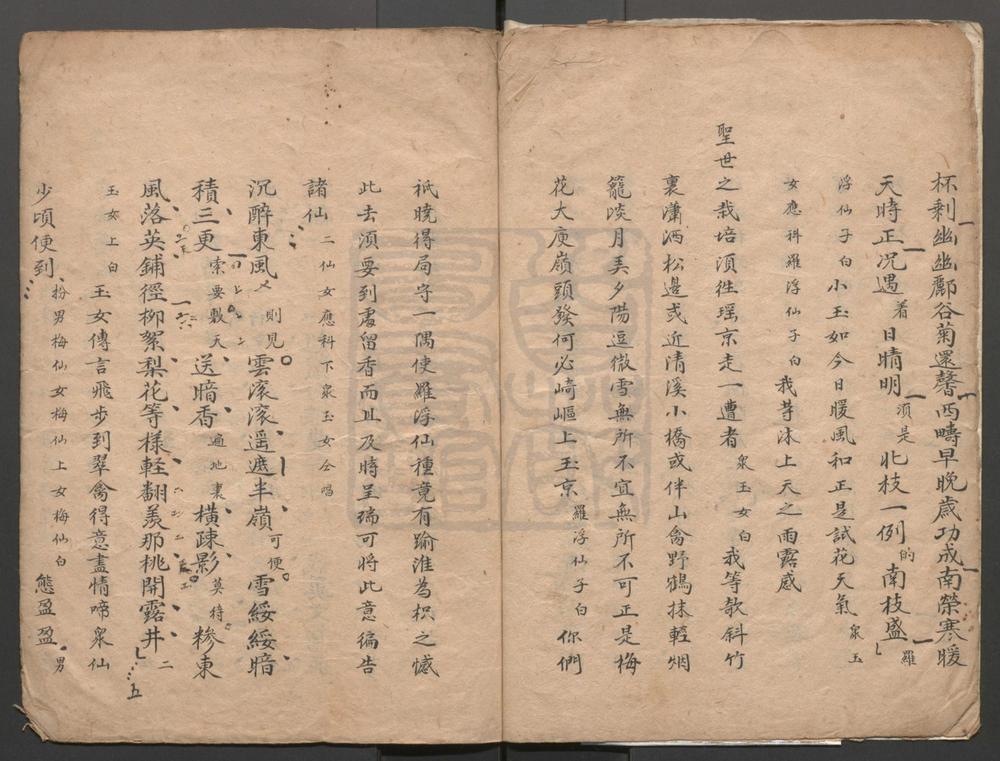 杯剩幽幽酈谷菊還馨西疇早晚歲功成南榮寒暖
天時正况遇着日晴明須是北枝一例的南枝盛羅
浮仙子白小玉如今日暖風和正是試花天氣衆玉
女應科羅浮仙子白我等沐上天之雨露感
聖世之栽培須徃瑶京走一遭者衆玉女白我等欹斜竹
裏瀟洒松邉或近清溪小橋或伴山禽野鶴抹輕烟
籠淡月美夕陽逗微雪無所不宜無所不可正是梅
花大庾嶺頭發何必崎嶇上玉京羅浮仙子白你們
祇曉得局守一隅使羅浮仙種竟有踰淮為枳之憾
此去須要到處留香而且及時呈瑞可將此意徧告
諸仙二仙女應科下衆玉女仝唱
沉醉東風則見雲滾滾遥遮半嶺可便雪綏綏暗
積三更索要數天送暗香遍地裏横疎影莫待糝東
風落英鋪徑柳絮梨花等樣輕翻羨那桃開露井二
玉女上白玉女傳言飛步到翠禽得意盡情啼衆仙
少頃便到扮男梅仙女梅仙上女梅仙白態盈盈男
五